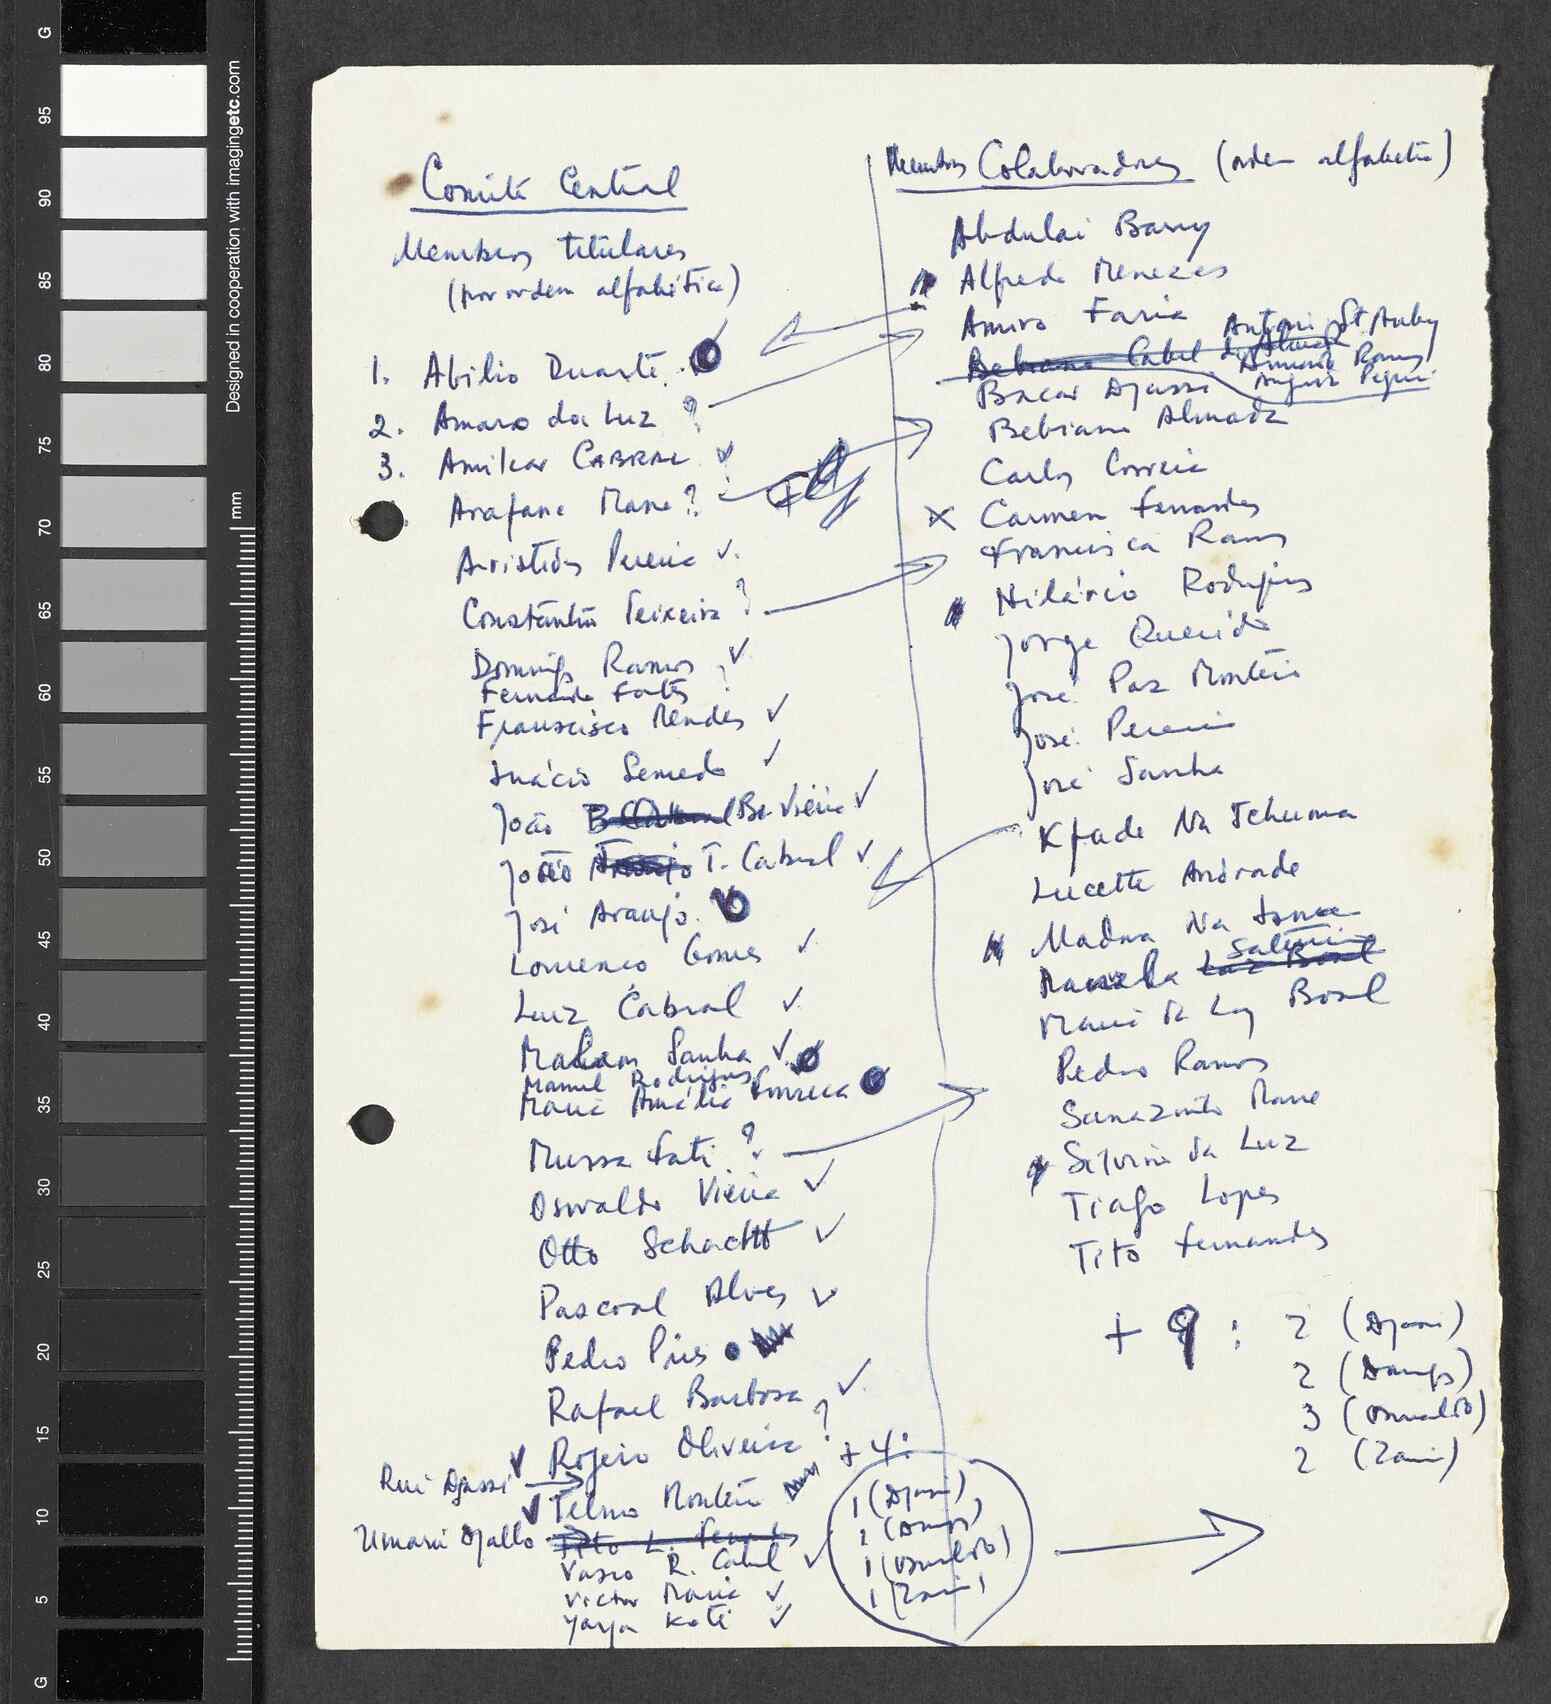 Comité Central
Membros titulares
(por ordem alfabética)
1. Abilio Duarte
2. Amaro da Luz ?
3. Amilcar CABRAL ✓
Arafane Mane ?
Aristides Pereira ✓
Constantino Teixeira ?
Domingos Ramos ✓
Fernando Fortes
Francisco Mendes ✓
Inácio Semedo ✓
João B. Cabral Be. Vieira ✓
João T. Cabral ✓
José Araujo
Lourenço Gomes ✓
Luiz Cabral ✓
Malam Sanha ✓
Manuel Rodrigues
Maria Amélia Fonseca
Mussa Fati ?
Osvaldo Vieira ✓
Otto Schacht ✓
Pascoal Alves ✓
Pedro Pires
Rafael Barbosa ✓
Rogerio Oliveira ?
Rui Djassi ✓
Telmo Monteiro
Umaru Djallo ✓
Tito L. Fernandes
Vasco R. Cabral ✓
Victor Maria ✓
Yaya Koté ✓
+ 4:
1 (Djassi)
1 (Domgs)
1 (Osvaldo)
1 (Zain)
Membros Colaboradores (ordem alfabética)
Abdulai Barry
Alfredo Menezes
Amiro Faria
Bebiano Cabral d'Almada
Armando Ramos
Bacar Djassi
Bebiano Almada
Carlos Correia
x Carmen Fernandes
Francisca Ramos
Hilário Rodrigues
Jorge Querido
José Paz Monteiro
José Pereira
José Sanha
Kfade Na Tchuma
Lucette Andrade
Madna Na
Maria da Luz Boal
Pedro Ramos
Mane
Silvino da Luz
Tiago Lopes
Tito Fernandes
+ 9 : 2 (Djassi)
2 (Domgs)
3 (Osvaldo)
2 (Zain)
G
95
90
85
80
75
70
65
60
55
50
45
40
35
30
25
20
15
10
5
G
mm
Designed in cooperation with imagingetc.com